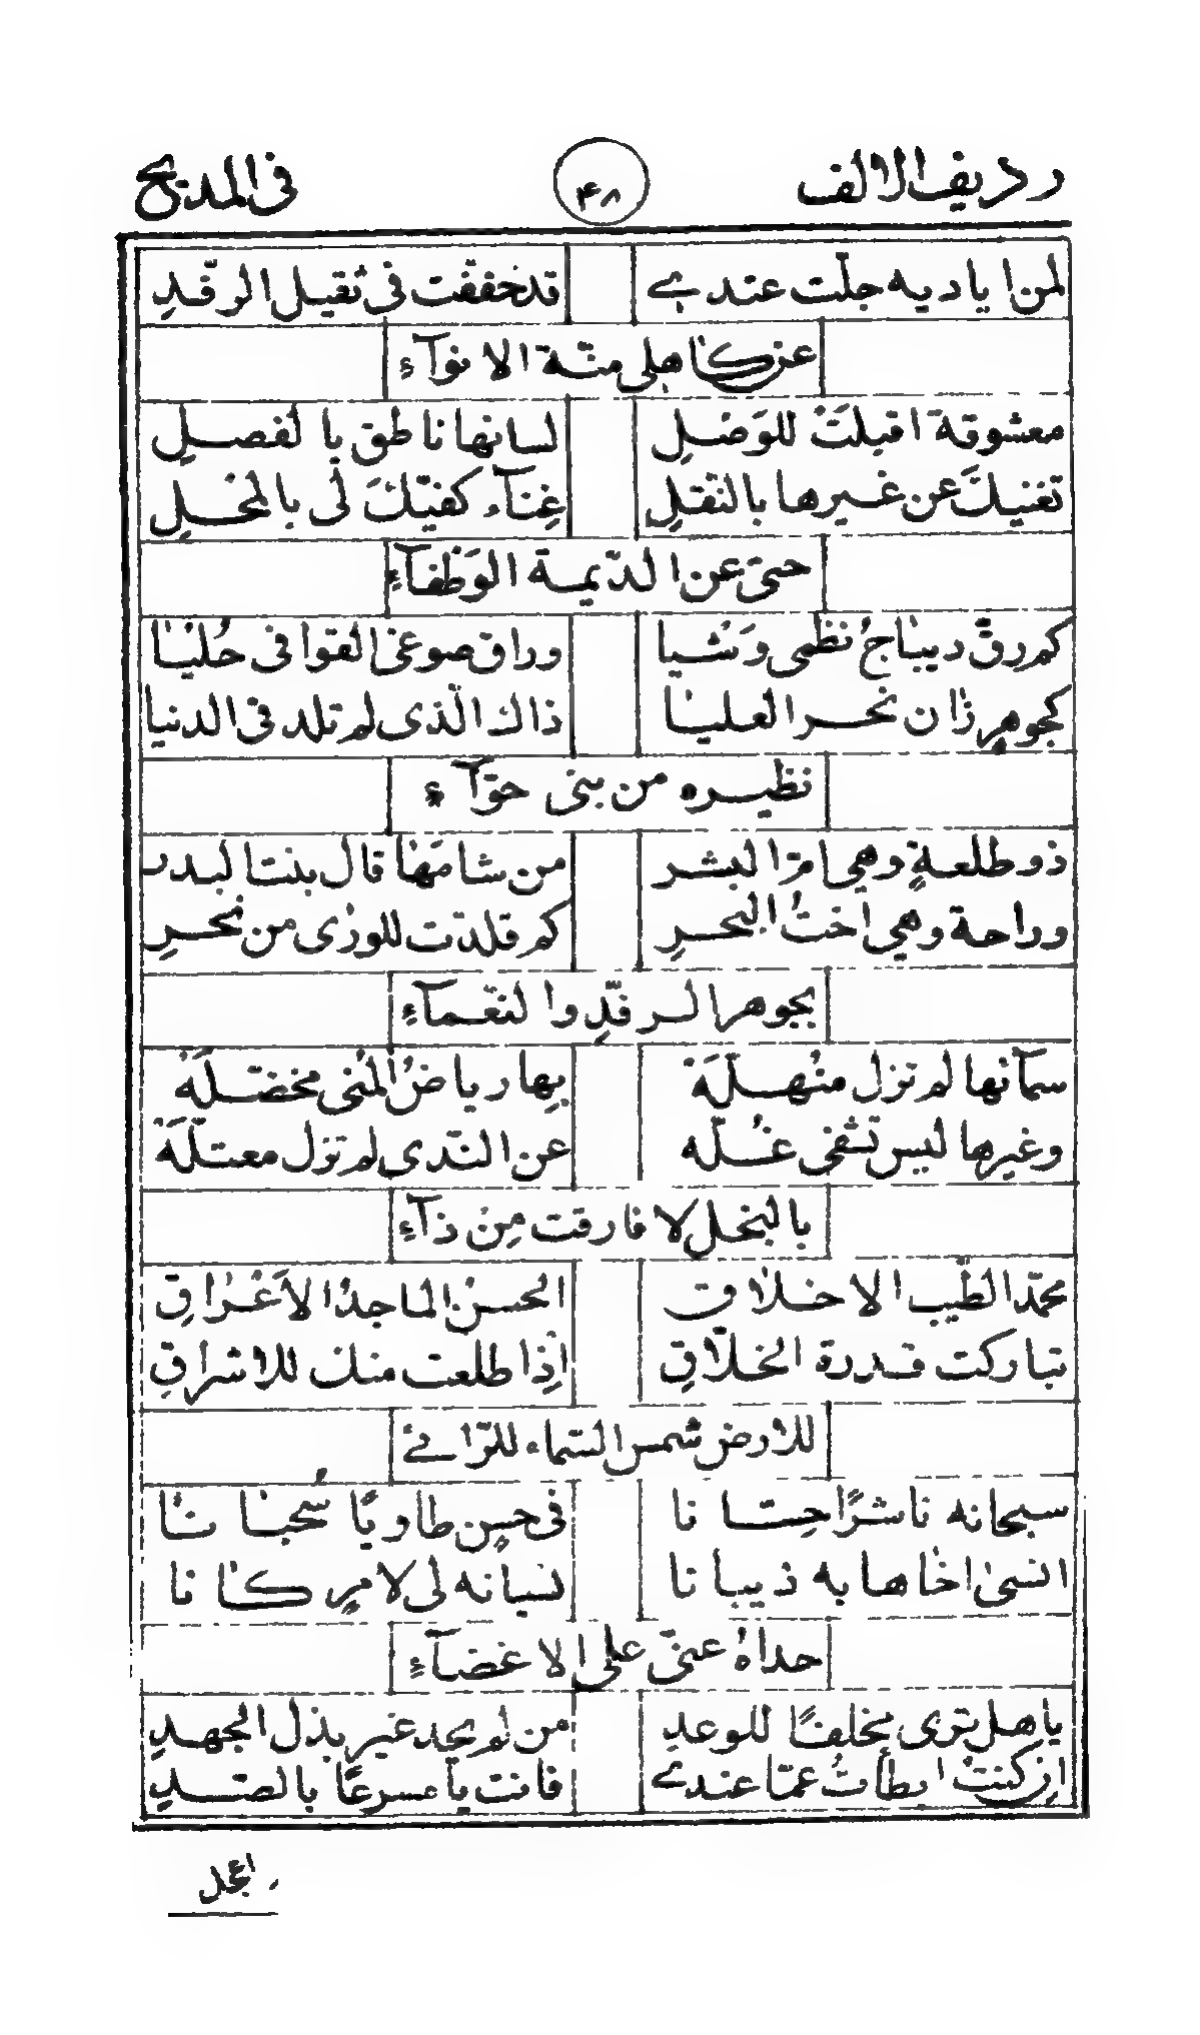 رديف الالف ٤٨ فى المديح
لمن اياديه جلّت عندے قد خففت فى ثقيل الرفدِ
عن كاهلى منّة الانوآءِ
معشوقة اقبلَتْ للوَصْلِ لسانها ناطق بالفصلِ
تغنيكَ عن غيرها بالنّقلِ غِنآء كفيّكَ لى بالمحلِ
حتىّ عن الدّيمة الوَطْفآءِ
كم رقّ ديباجُ نظمى وَشْيا وراق صوغى القوافى حُليْا
كجوهرٍ زان نحر العليا ذاك الّذى لم تلد فى الدنيا
نظيره من بنى حوّآء
ذو طلعةٍ وهى امّ البشر من شامَها قال بنت البدر
وراحة وهى اختُ البحرِ كم قلدت للورى من نحرِ
بجوهر الرفدِ والنعمآءِ
سمآئها لم تزل منْهلّة بها رياضُ المُنى مخضلّة
وغيرها ليس تشفى غُلّه عن النّدى لم تزل معتلّة
بالبخل لا فارقت مِنْ دآءِ
محمّد الطّيب الاخلاق الحسنُ الماجدُ الأعْراقِ
تباركت قدرة الخلّاقِ اِذا طلعت منك للاشراقِ
للارض شمس السّماء للرّائے
سبحانه ناشرًا حسّانا فى حسنٍ طاويًا سُحبانا
انسى اخاها به ذيبانا نسيانه لى لامرٍ كانا
حداهُ عنىّ على الاغضآءِ
يا هل ترى مخلفًا للوعدِ من لم يجد غير بذل الجهدِ
ان كنتَ ابطأتُ عمّا عندے فانت يا مسرعًا بالصّدِ
اعجل